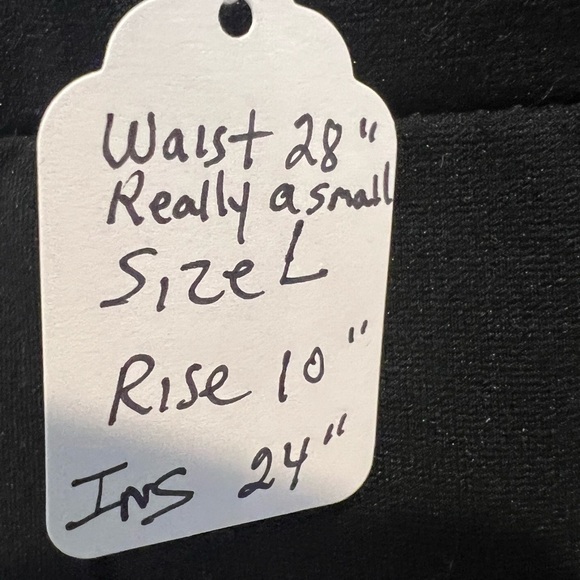 Waist 28"
Really a small
Size L
Rise 10"
Ins 24"